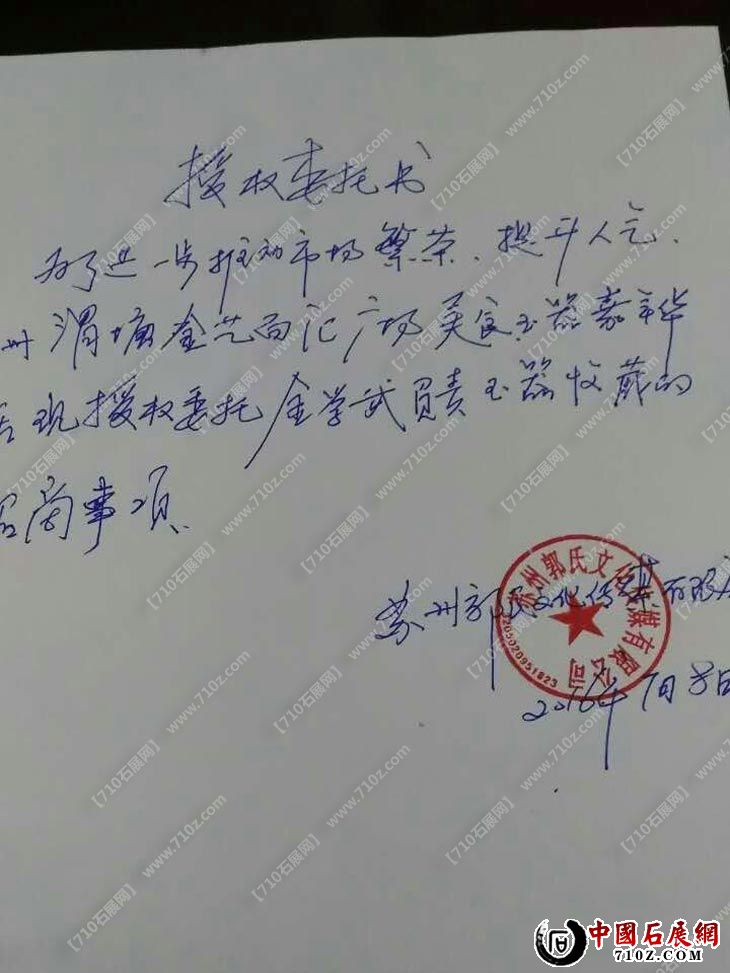 授权委托书
为了进一步推动市场繁荣、提斗人气、
州渭塘金艺百汇广场美食玉器嘉年华
现授权委托金学武负责玉器收藏的
招商事项
苏州郭氏文化传媒有限
2016年7月8日
苏州郭氏文化传媒有限公司
3205020951823
【710石展网】 www.710z.com
中國石展網
710Z.COM